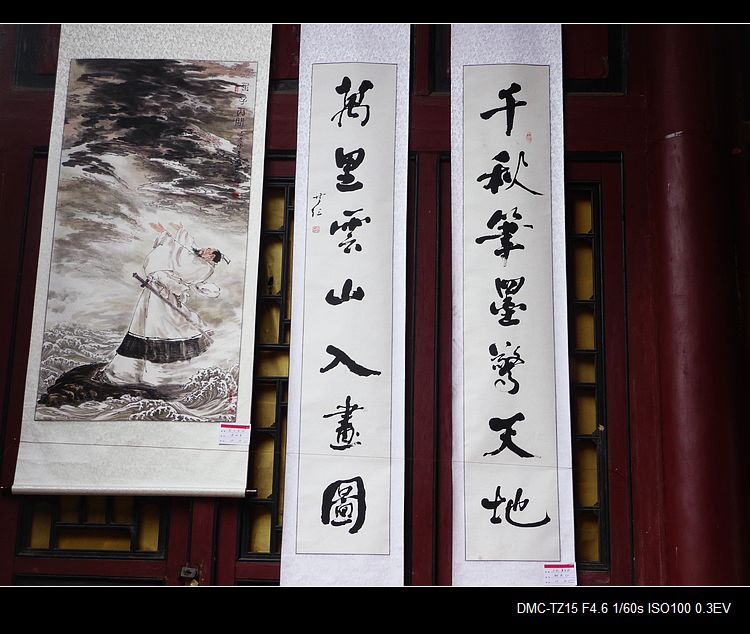 千秋筆墨驚天地
萬里雲山入畫圖
DMC-TZ15 F4.6 1/60s ISO100 0.3EV